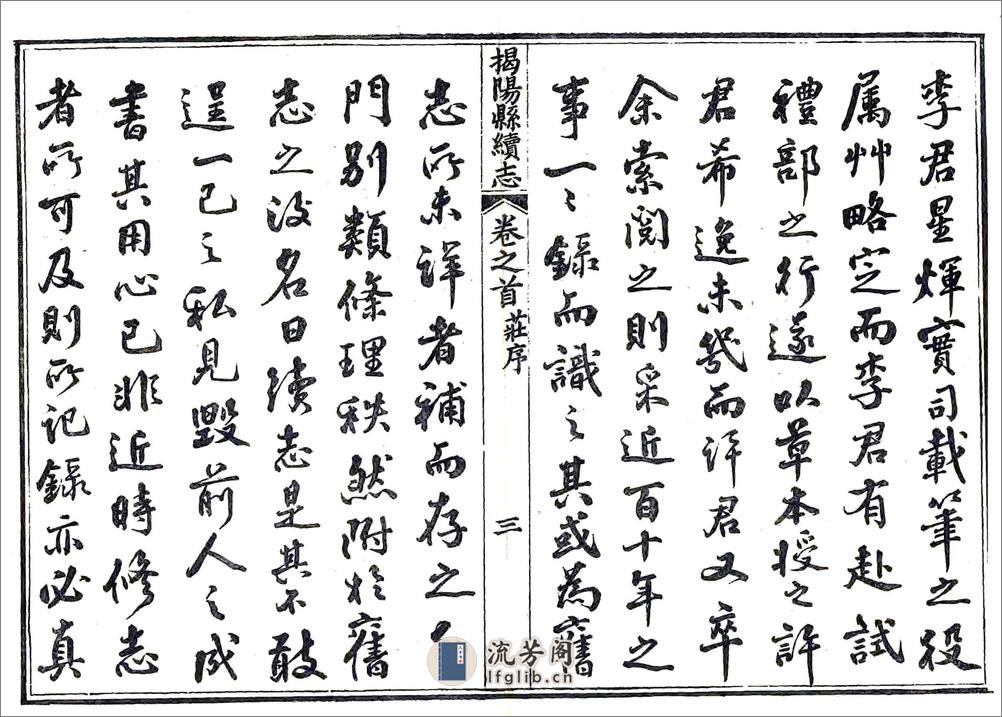 李君星煇實司載筆之役
属艸略定而李君有赴試
禮部之行遂以草本授之許
君希逸未幾而許君又卒
余索閱之則采近百十年之
事一〻錄而識之其或為舊
揭陽縣續志 卷之首 莊序 三
志所未詳者補而存之
門別類條理秩然附於舊
志之後名曰續志是其不敢
逞一己之私見毀前人之成
書其用心已非近時修志
者所可及則所記錄亦必真
流芳阁
lfglib.cn